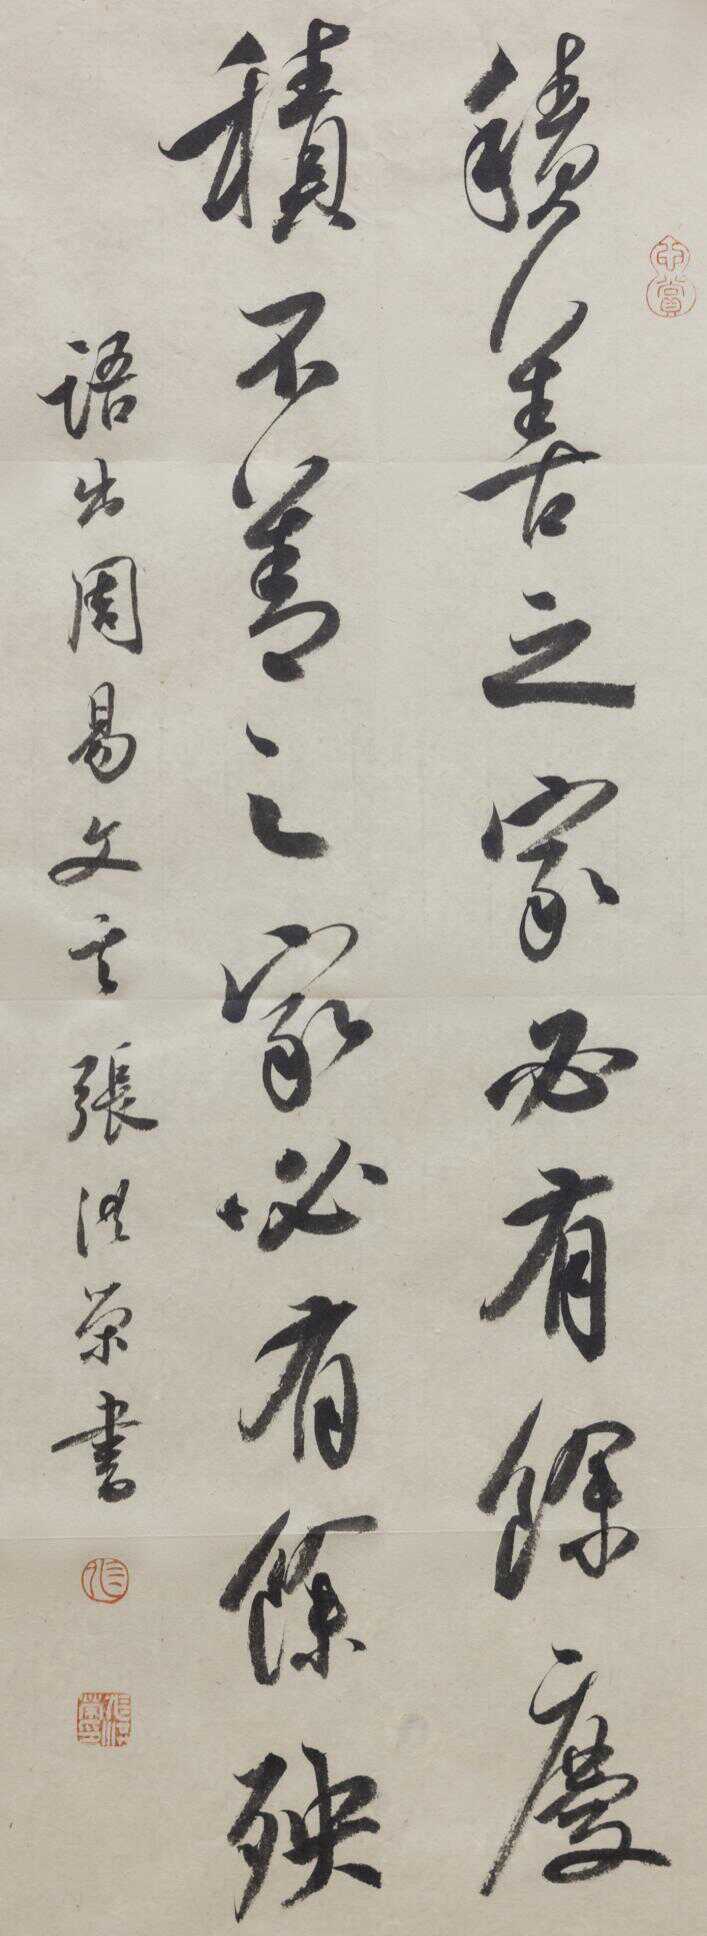 積善之家必有餘慶
積不善之家必有餘殃
語出周易文言 張洪榮書